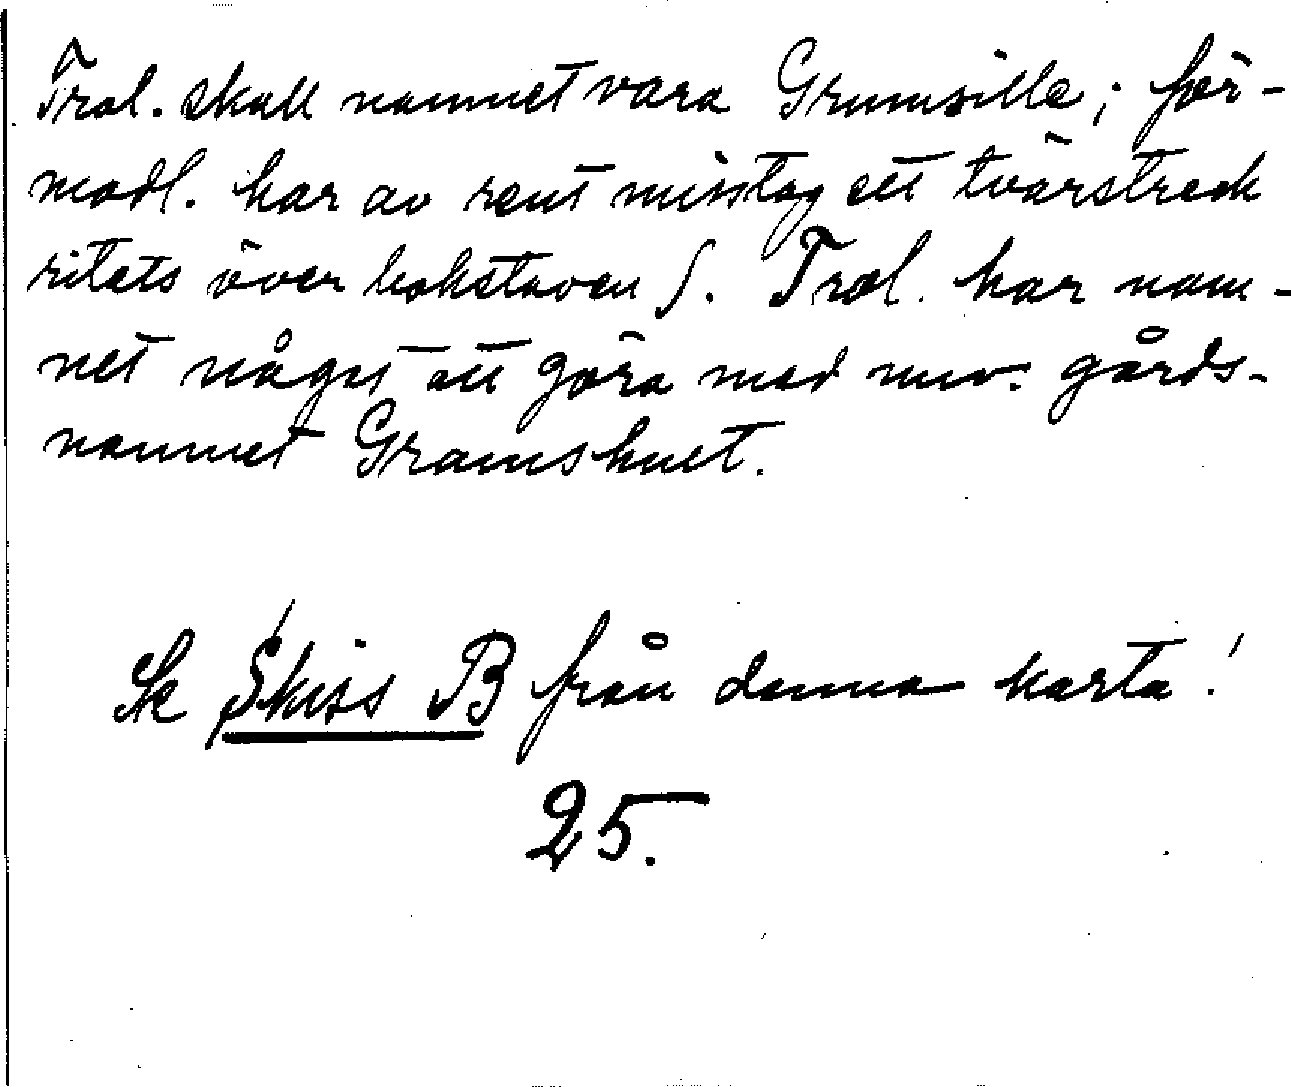 Trol. skall namnet vara Grumsille; för-
modl. har av rent misstag ett tvärstreck
ritats över bokstaven ſ. Trol. har nam-
net något att göra med nuv. gårds-
namnet Gramshult.
Se Skiss B från denna karta!
25.